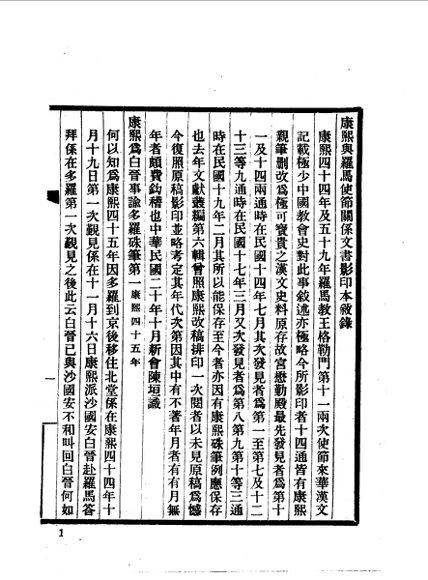 康熙與羅馬使節關係文書影印本敘錄
康熙四十四年及五十九年羅馬教王格勒門第十一兩次使節來華漢文
記載極少中國教會史對此事敘述亦極略今所影印者十四通皆有康熙
親筆刪改為極可寶貴之漢文史料原存故宮懋勤殿最先發見者為第十
一及十四兩通時在民國十四年七月其次發見者為第一至第七及十二
十三等九通時在民國十七年三月又次發見者為第八第九第十等三通
時在民國十九年二月其所以能保存至今者亦因有康熙硃筆例應保存
也去年文獻叢編第六輯曾照康熙改稿排印一次閱者以未見原稿為憾
今復照原稿影印並略考定其年代次第因其中有不著年月者有有月無
年者頗費鈎稽也中華民國二十年十月新會陳垣識
康熙為白晉事諭多羅硃筆第一康熙四十五年
何以知為康熙四十五年因多羅到京後移住北堂係在康熙四十四年十
月十九日第一次覲見係在十一月十六日康熙派沙國安白晉赴羅馬答
拜係在多羅第一次覲見之後此云白晉已與沙國安不和叫回白晉何如
一
1